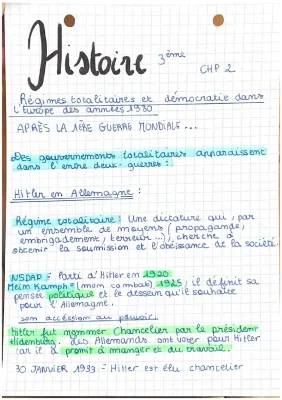 Histoire 3ème
CHP 2
Régimes totalitaires et démocratie dans
l'Europe des années 1930
APRÈS LA 1ÈRE GUERRE MONDIALE...
Des gouvernements totalitaires apparaissent
dans l'entre deux-guerres :
Hitler en Allemagne :
Régime totalitaire : Une dictature qui, par
un ensemble de moyens (propagande,
embrigadement, terreur...), cherche à
obtenir la soumission et l'obéissance de la société.
NSDAP = Parti d'Hitler en 1920
Meim Kampf = (mon combat) 1925, il définit sa
penser politique et le dessein qu'il souhaite
pour l'Allemagne.
son accession au pouvoir:
Hitler fut nommer Chancelier par le président
Hidenburg. Les Allemands ont voter pour Hitler
car il a promit à manger et du travail.
30 JANVIER 1933 - Hitler est élu chancelier